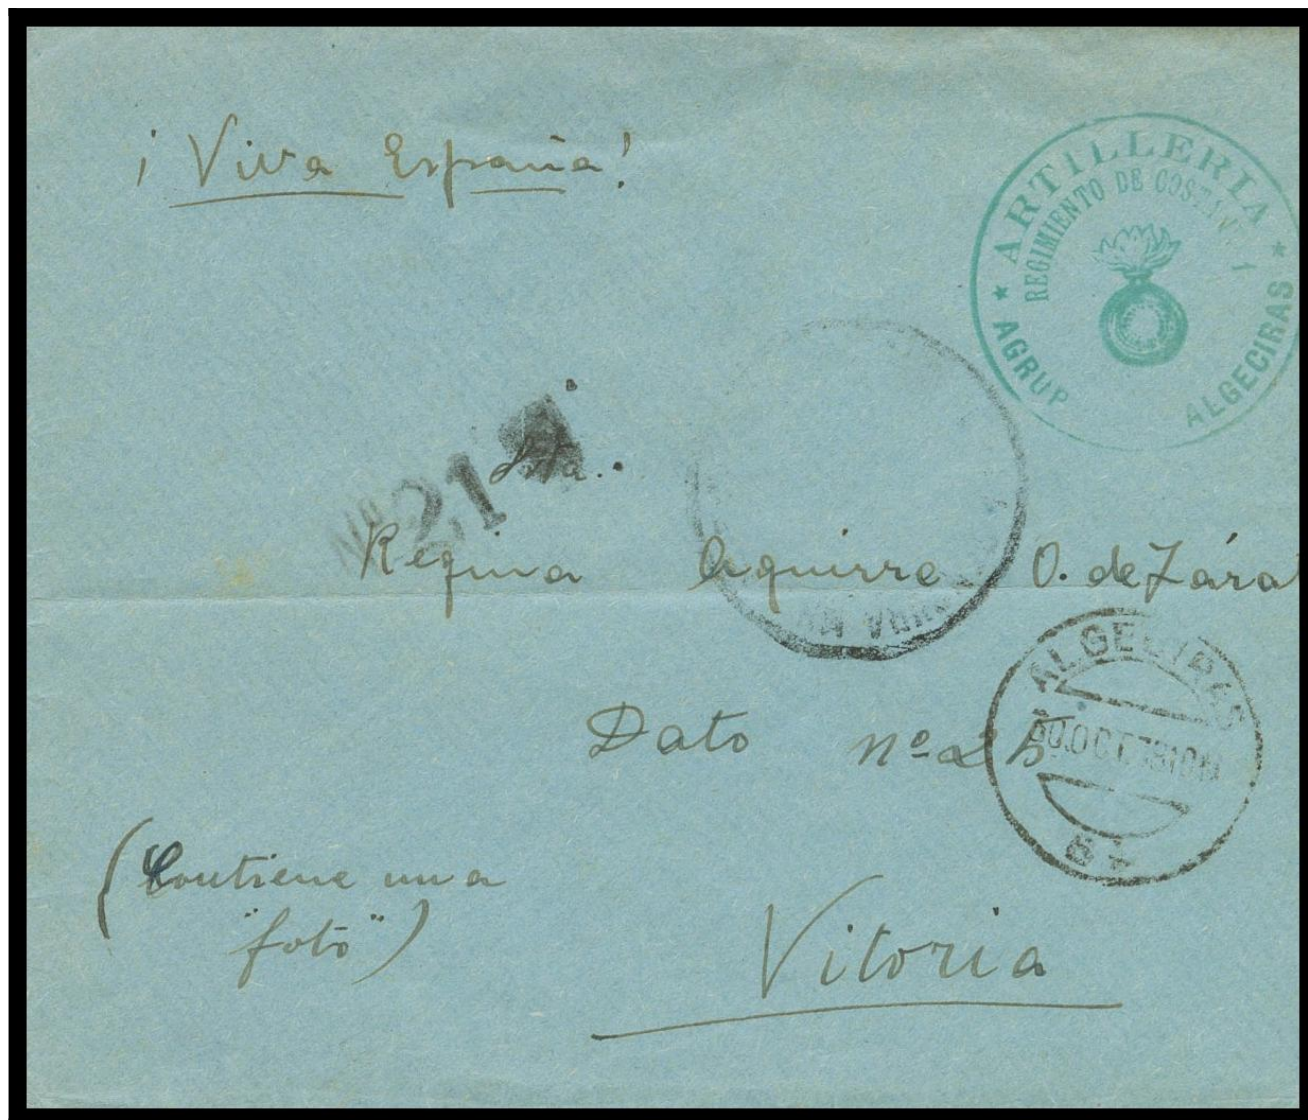 ¡Viva España!
★ ARTILLERIA ★
REGIMIENTO DE COSTA Nº 1
AGRUP ALGECIRAS
Nº 21
Srta.
Regina Aguirre O. de Zára
Dato nº 25
ALGECIRAS
30.OCT.38 10M
(Contiene una
"foto")
Vitoria